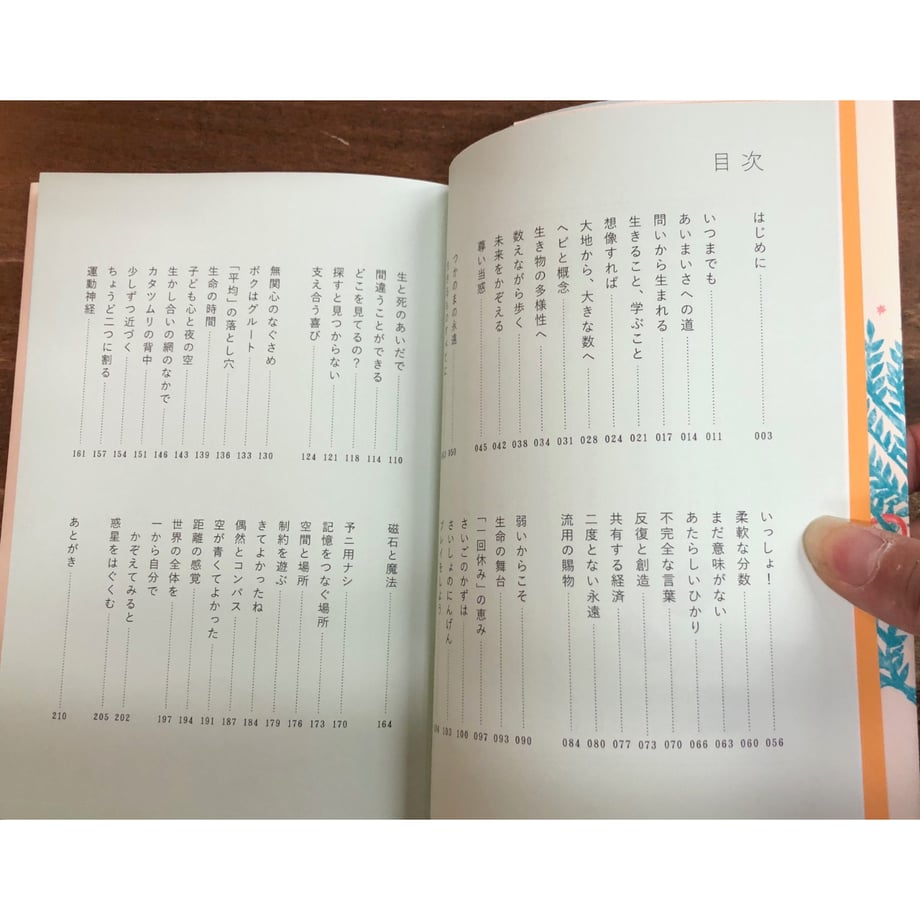 目次
はじめに 003
いつまでも 011
あいまいさへの道 014
問いから生まれる 017
生きること、学ぶこと 021
想像すれば 024
大地から、大きな数へ 028
ヘビと概念 031
生き物の多様性へ 034
数えながら歩く 038
未来をかぞえる 042
尊い当惑 045
つかのまの永遠 050
いっしょ！ 056
柔軟な分数 060
まだ意味がない 063
あたらしいひかり 066
不完全な言葉 070
反復と創造 073
共有する経済 077
二度とない永遠 080
流用の賜物 084
弱いからこそ 090
生命の舞台 093
「一回休み」の恵み 097
さいごのかずは 100
さいしょのにんげん 103
プレイをしよう
生と死のあいだで 110
間違うことができる 114
どこを見てるの？ 118
探すと見つからない 121
支え合う喜び 124
無関心のなぐさめ 130
ボクはグルート 133
「平均」の落とし穴 136
生命の時間 139
子ども心と夜の空 143
生かし合いの網のなかで 146
カタツムリの背中 151
少しずつ近づく 154
ちょうど二つに割る 157
運動神経 161
磁石と魔法 164
予ニ用ナシ 170
記憶をつなぐ場所 173
空間と場所 176
制約を遊ぶ 179
きてよかったね 184
偶然とコンパス 187
空が青くてよかった 191
距離の感覚 194
世界の全体を 197
一から自分で
かぞえてみると 202
惑星をはぐくむ 205
あとがき 210